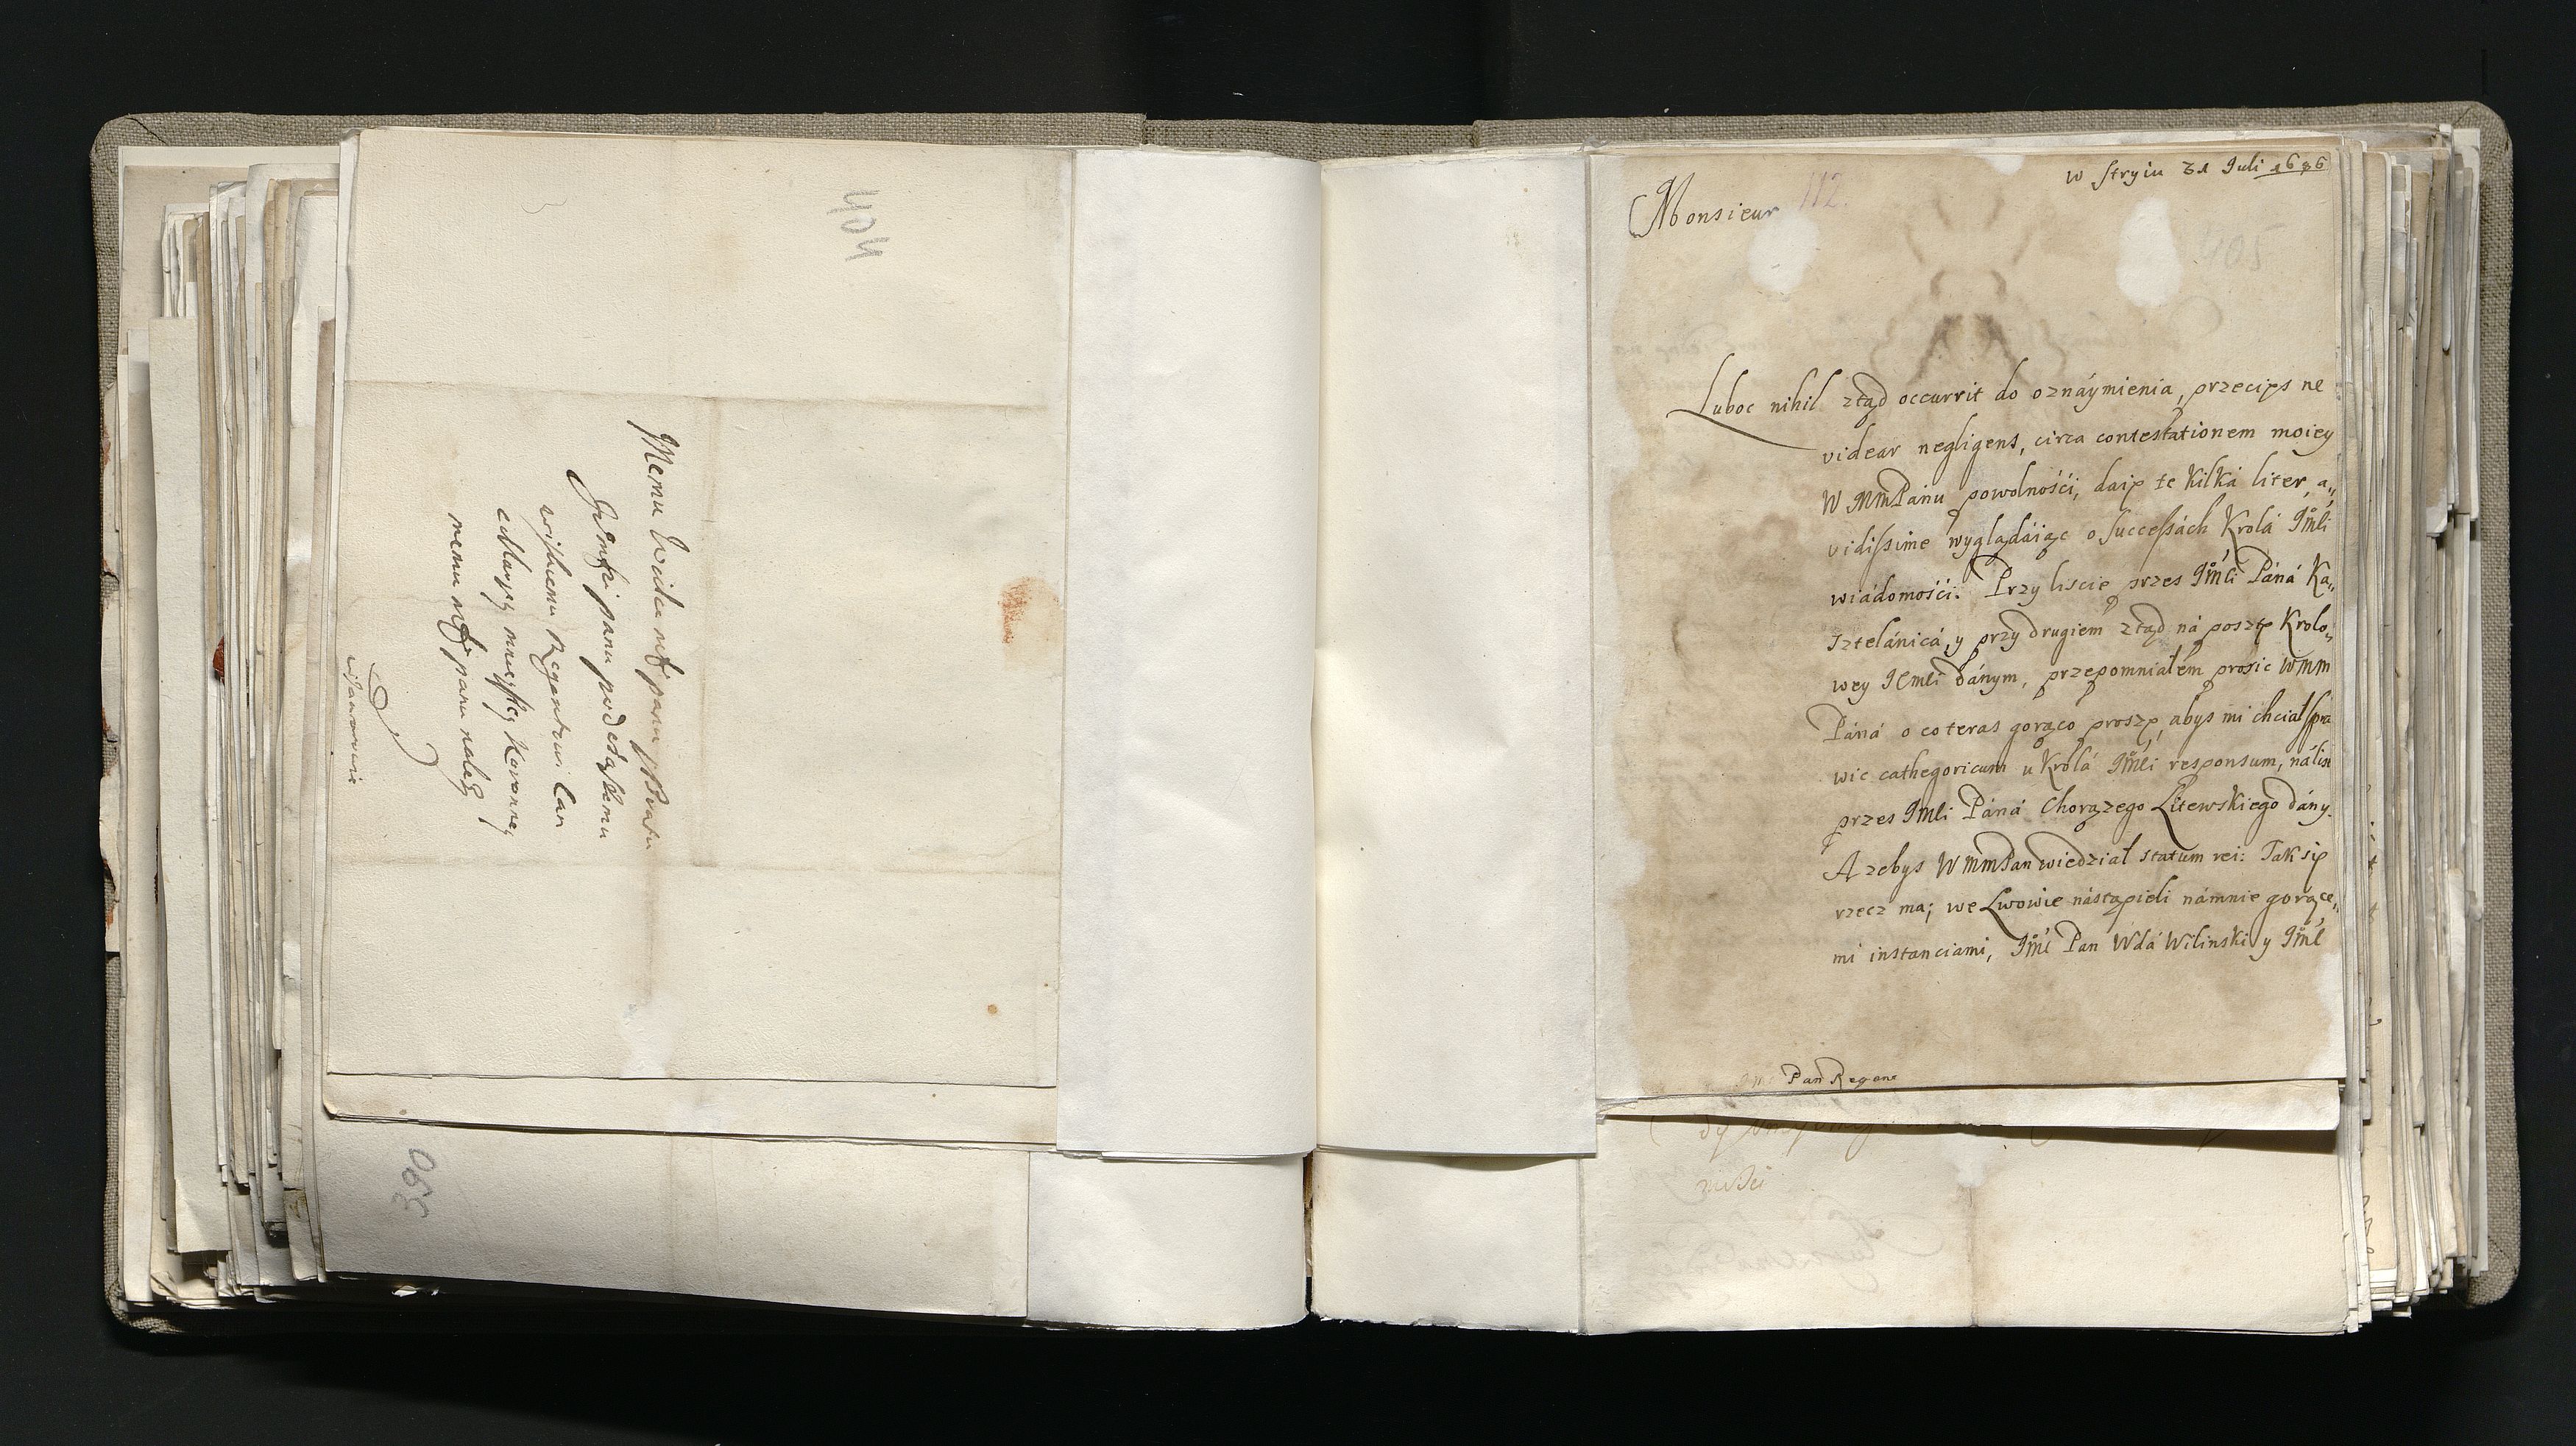 404
Memu Wielce msc panu y Bratu
Jemsci panu podedskemu
Regentowi Can
mnieyszey Koronney
memu msc panu nalezy
390
w Stryiu 31 Juli 1686
Monsieur
112.
405
Luboc nihil ztąd occurrit do oznáymienia, przecię ne
videar negligens, circa contestationem moiey
W MmPánu powolnośći, daię te kilká liter, a,,
vidissime wyglądáiąc o successách Krolá JMći
wiádomośći. Przy liscie przes JMći Páná Ka,,
sztelánicá, y przy drugiem ztąd ná posztę Krolo,,
wey JeMći dánym, przepomniałem prosic WMM
Páná o co teras gorąco proszę, abys mi chciał spra
wic cathegoricum u Krolá JMći responsum, ná list
przes JMći Páná Chorązego Litewskiego dány.
A zebys WMMPan wiedział statum rei: Tak się
rzecz ma; we Lwowie nástąpieli námnie gorące,,
mi instanciami, JMć Pan Wdá Wilinski y JMć
Pan Regent